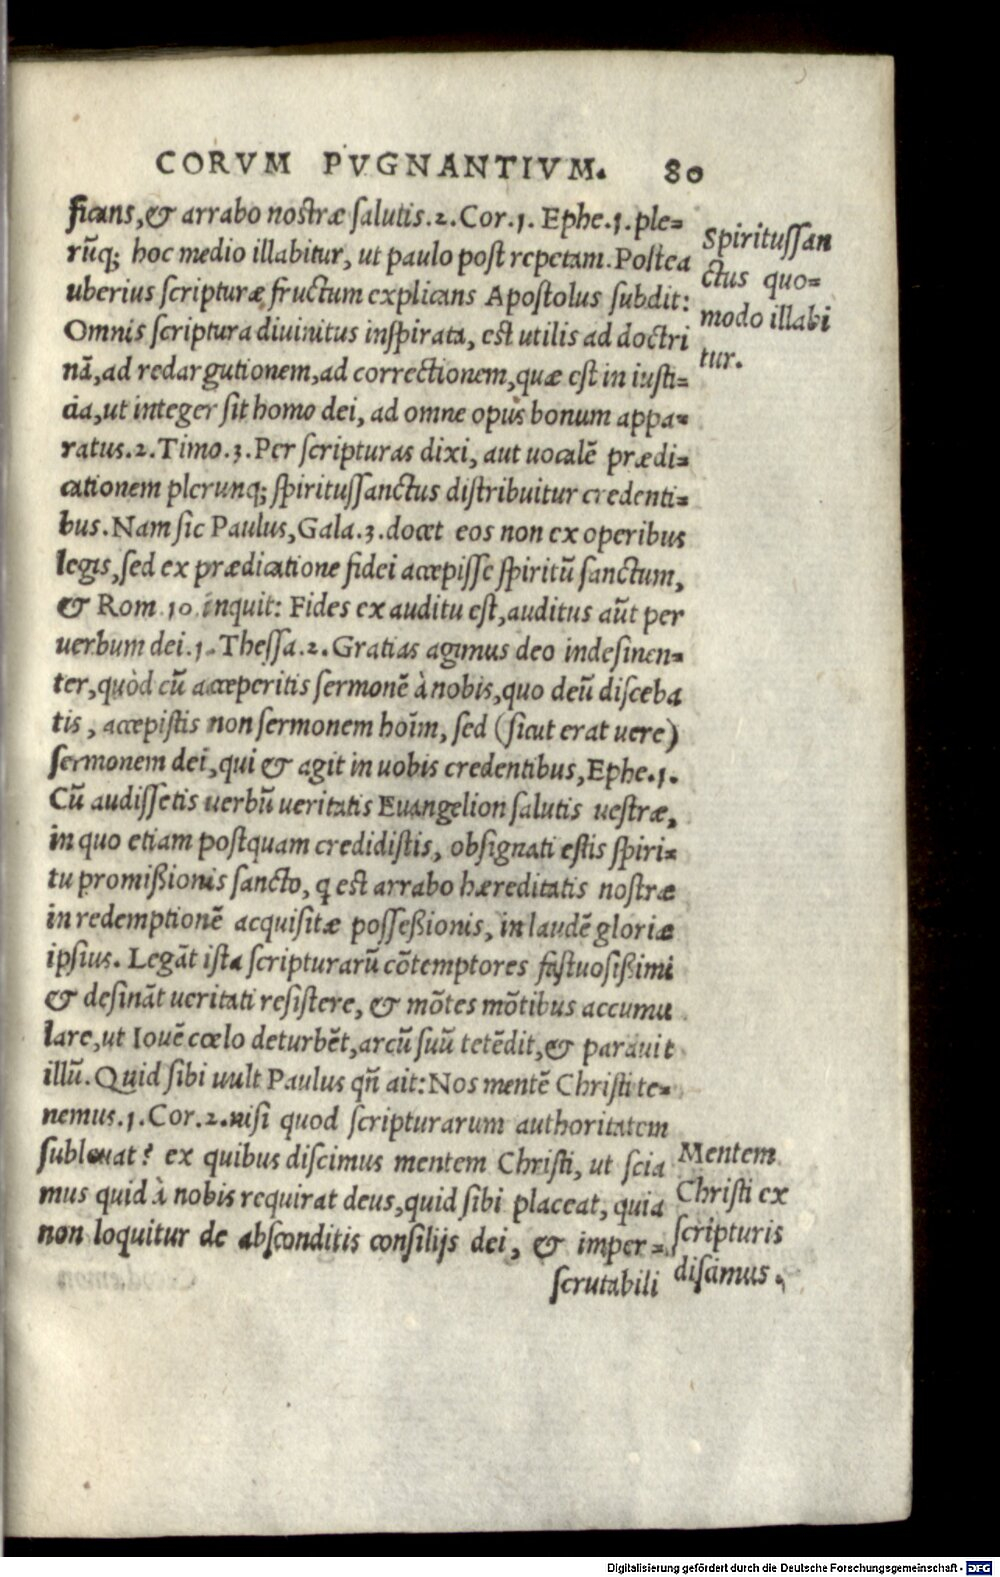 CORVM PVGNANTIVM. 80
ficans, & arrabo nostræ ſalutis.2. Cor.1. Ephe.1. ple=
rũq; hoc medio illabitur, ut paulo poſt repetam. Poſtea
uberius ſcripturæ fructum explicans Apoſtolus ſubdit:
Omnis ſcriptura diuinitus inſpirata, eſt utilis ad doctri
nã, ad redargutionem, ad correctionem, quæ eſt in iuſti=
cia, ut integer ſit homo dei, ad omne opus bonum appa=
ratus.2. Timo.3. Per ſcripturas dixi, aut uocalẽ prædi=
cationem plerunq; ſpirituſſanctus diſtribuitur credenti=
bus. Nam ſic Paulus, Gala.3. docet eos non ex operibus
legis, ſed ex prædicatione fidei accepiſſe ſpiritũ ſanctum,
& Rom 10 inquit: Fides ex auditu eſt, auditus aũt per
uerbum dei.1. Theſſa.2. Gratias agimus deo indeſinen=
ter, quòd cũ acceperitis ſermonẽ à nobis, quo deũ diſceba
tis, accepiſtis non ſermonem hoĩm, ſed (ſicut erat uere)
ſermonem dei, qui & agit in uobis credentibus, Ephe.1.
Cũ audiſſetis uerbũ ueritatis Euangelion ſalutis ueſtræ,
in quo etiam poſtquam credidiſtis, obſignati eſtis ſpiri=
tu promißionis ſancto, ꝗ eſt arrabo hæreditatis noſtræ
in redemptionẽ acquiſitæ poſſeßionis, in laudẽ gloriæ
ipſius. Legãt iſta ſcripturarũ cõtemptores faſtuoſißimi
& deſinãt ueritati reſiſtere, & mõtes mõtibus accumu
lare, ut Iouẽ cœlo deturbẽt, arcũ ſuũ tetẽdit, & parauit
illũ. Quid ſibi uult Paulus qñ ait: Nos mentẽ Chriſti te=
nemus.1. Cor.2. niſi quod ſcripturarum authoritatem
ſubleuat? ex quibus diſcimus mentem Chriſti, ut ſcia
mus quid à nobis requirat deus, quid ſibi placeat, quia
non loquitur de abſconditis conſilijs dei, & imper=
ſcrutabili
Spirituſſan
ctus quo=
modo illabi
tur.
Mentem
Chriſti ex
ſcripturis
diſcimus.
Digitalisierung gefördert durch die Deutsche Forschungsgemeinschaft - DFG